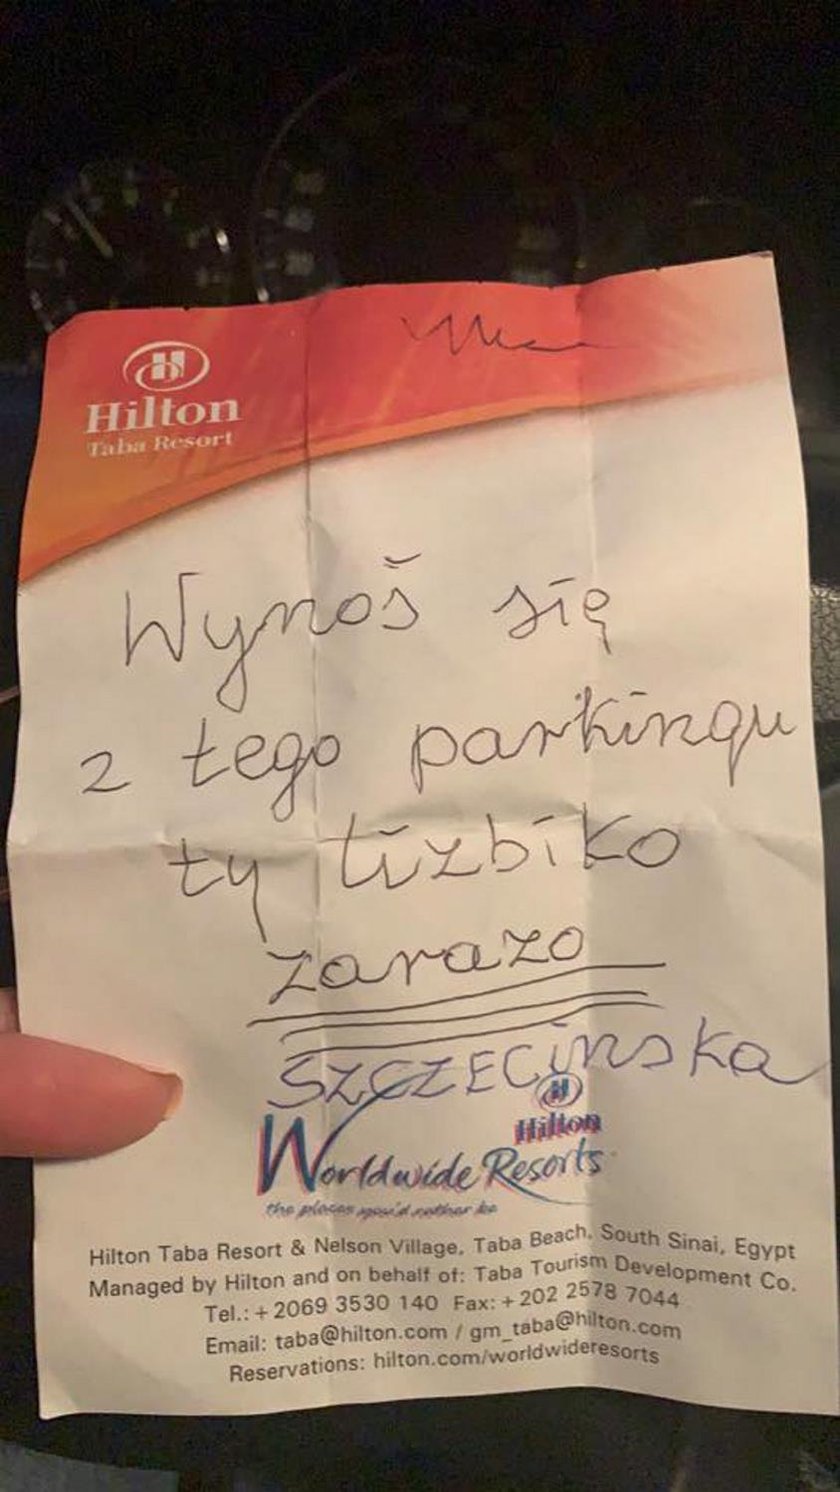 Hilton
Taba Resort
Wynoś się
z tego parkingu
ty lizbiko
zarazo
SZCZECinska
Hilton
Worldwide Resorts
the places you'd rather be
Hilton Taba Resort & Nelson Village, Taba Beach, South Sinai, Egypt
Managed by Hilton and on behalf of: Taba Tourism Development Co.
Tel.: +2069 3530 140 Fax: +202 2578 7044
Email: taba@hilton.com / gm_taba@hilton.com
Reservations: hilton.com/worldwideresorts